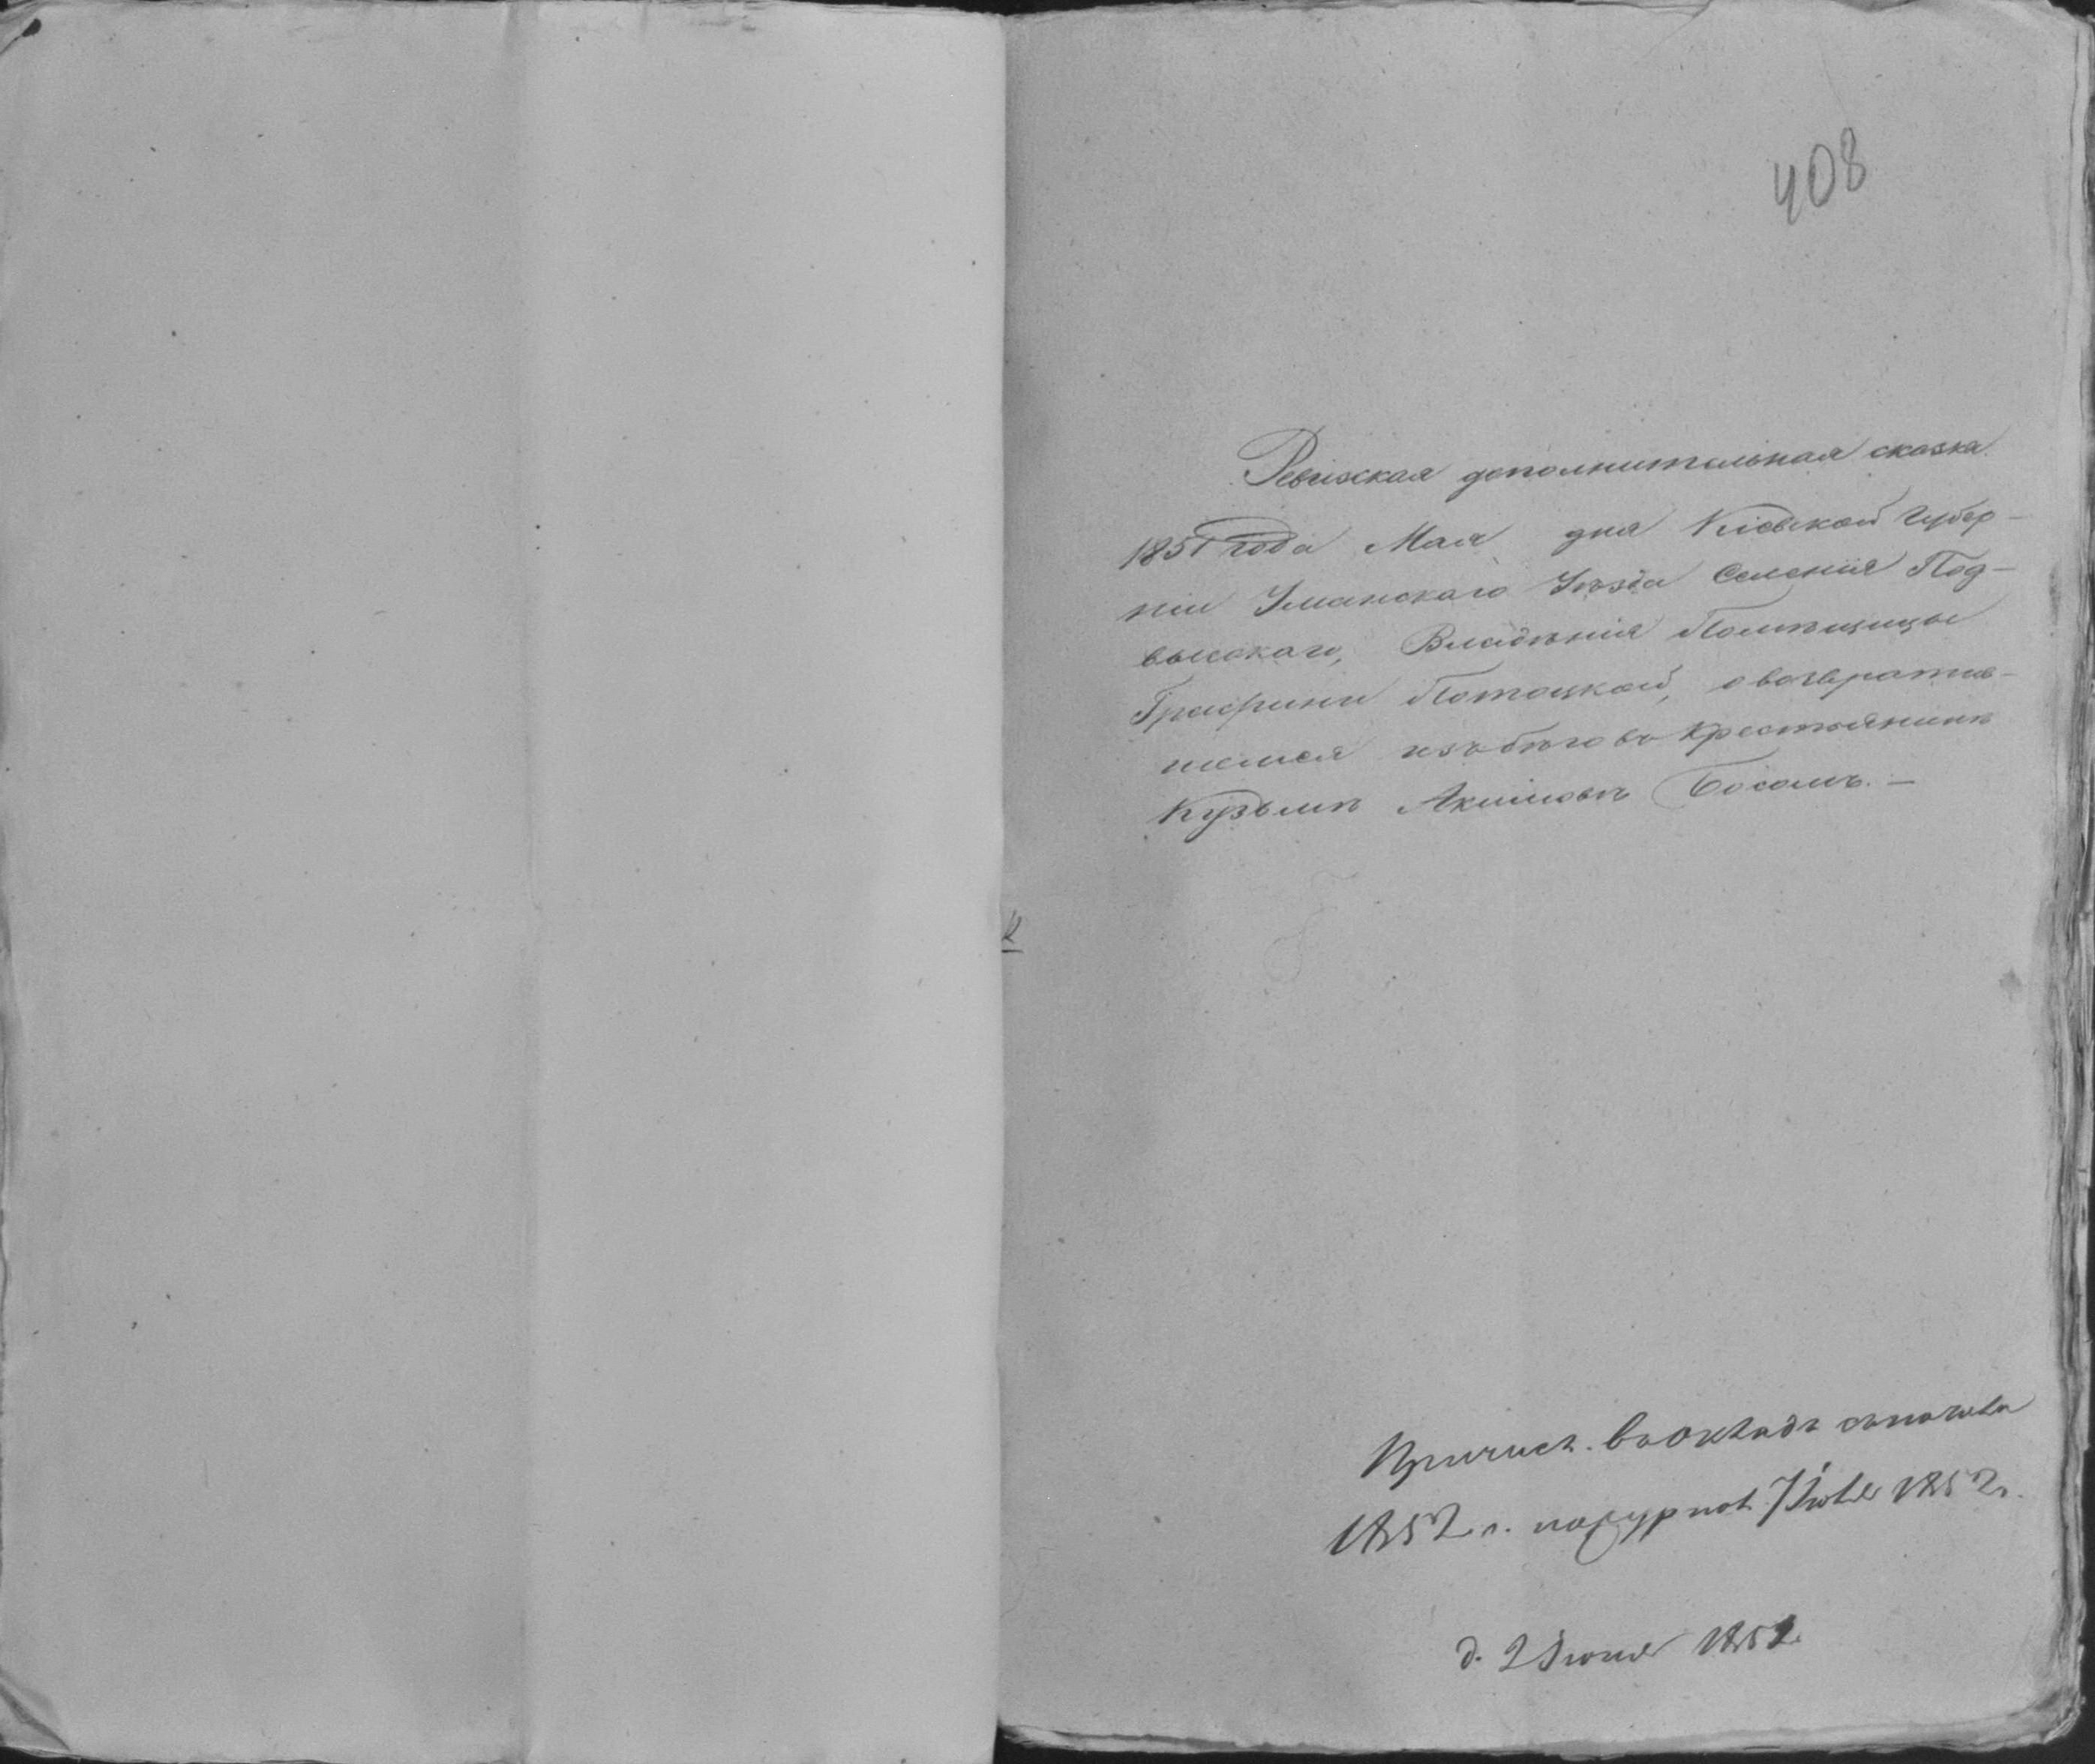 408
Ревижская дополнительная сказка
1851 года Мая дня Кіевской Губер-
ніи Уманскаго Уѣзда Селенія Под-
высокаго, Владѣнія Помѣщицы
Графини Потоцкой, о возвратив-
шемся изъ бѣгов Крестьянинѣ
Кузьмѣ Акимовѣ Босомъ. —
Причисл. въ окладъ съ начала
1852 г. по журнал. 7 Іюля 1852 г.
д. 2 Іюня 1852